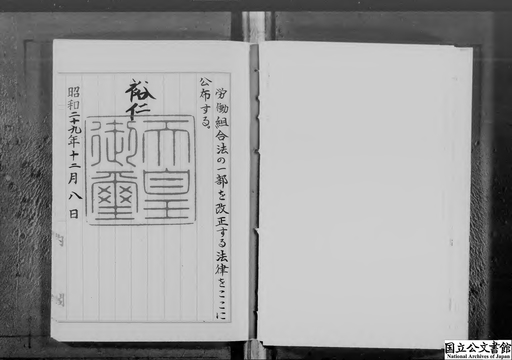 労働組合法の一部を改正する法律をここに
公布する。
裕仁
天皇
御璽
昭和二十九年十二月八日
国立公文書館
National Archives of Japan